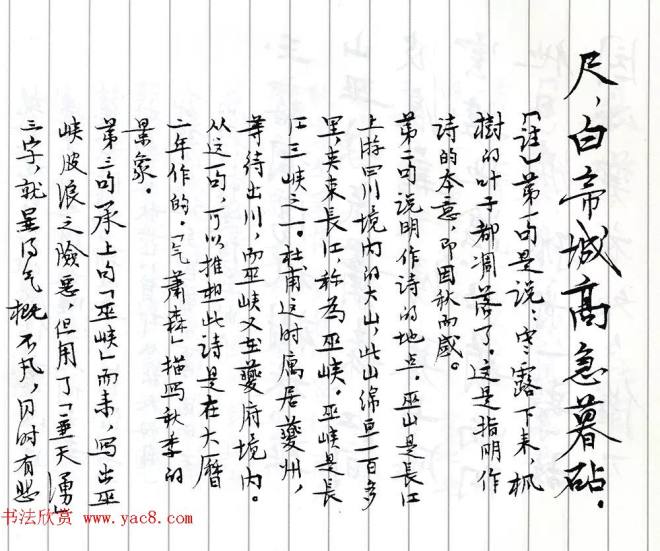 尺,白帝城高急暮砧。
【註】第一句是说:寒露下来,枫
樹的叶子都凋落了。这是指明作
诗的本意,即因秋而感。
第二句说明作诗的地点。巫山是長江
上游四川境内的大山,此山綿亘一百多
里,夹束長江,称為巫峡。巫峡是長
江三峡之一。杜甫这时寓居夔州,
等待出川,而巫峡又在夔府境内。
从这一句,可以推想此诗是在大曆
二年作的。「气蕭森」描写秋季的
景象。
第三句承上句「巫峡」而来,写出巫
峡波浪之險惡,但用了「兼天湧」
三字,就显得气概不凡,同时有悲
书法欣赏 www.yac8.com